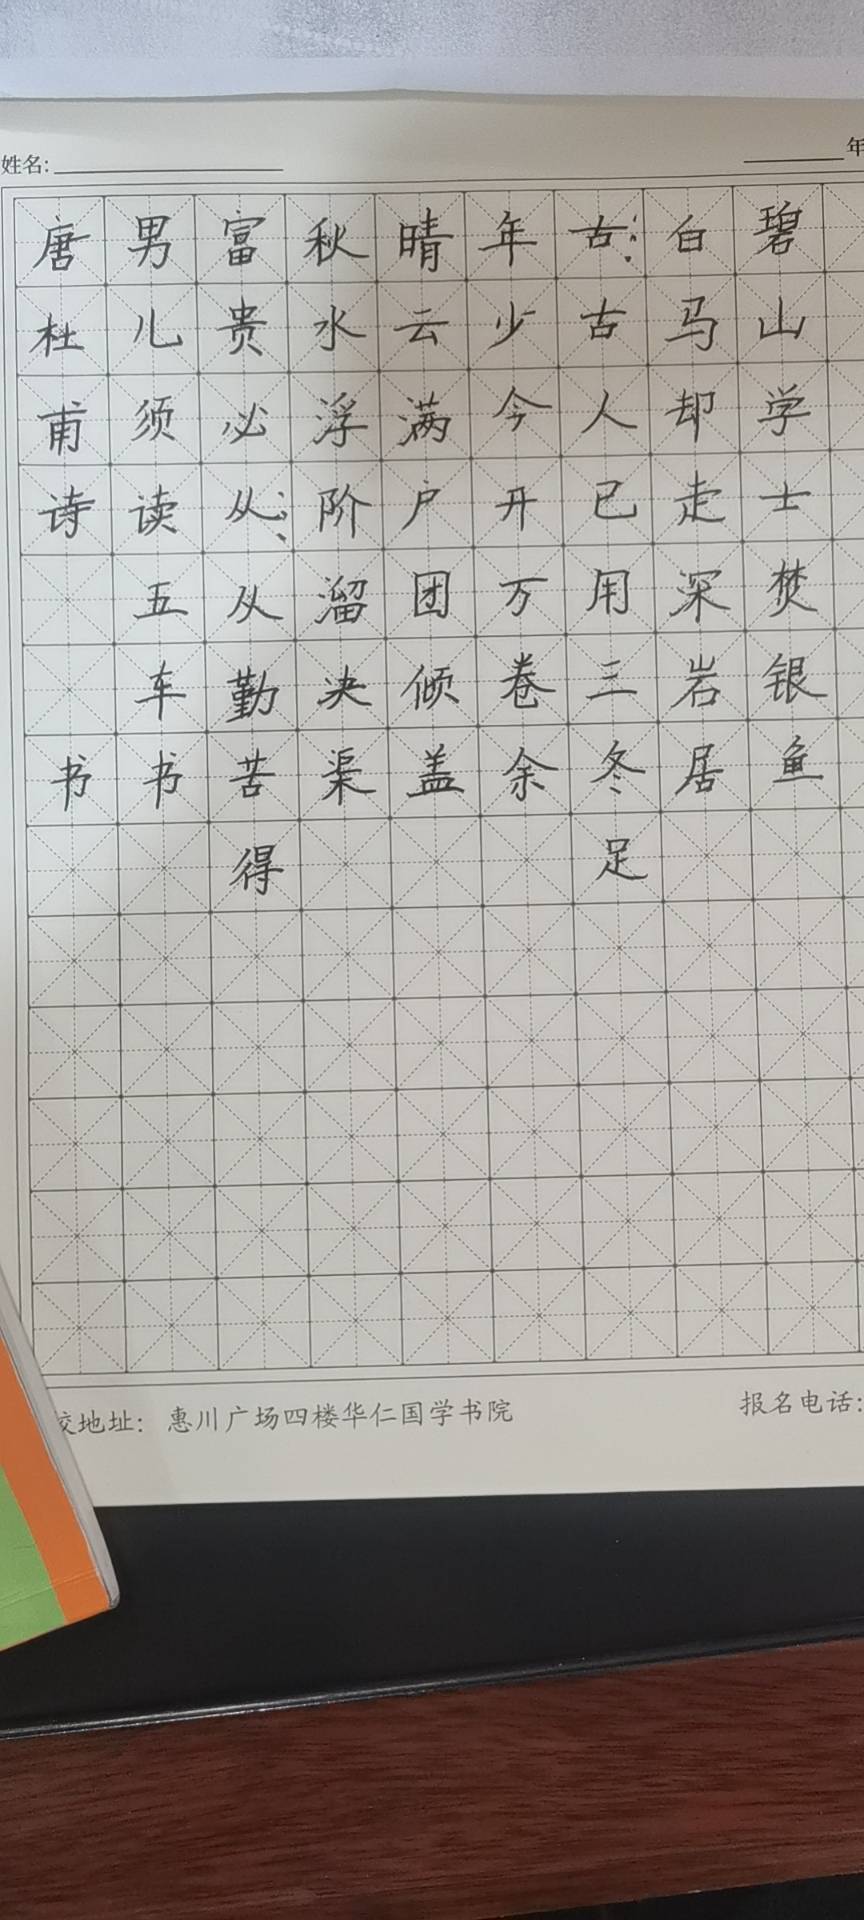 姓名:
年
碧山学士焚银鱼
白马却走深岩居
古古人已用三冬足
年少今开万卷余
晴云满户团倾盖
秋水浮阶溜决渠
富贵必从从勤苦得
男儿须读五车书
唐杜甫诗 书
地址：惠川广场四楼华仁国学书院
报名电话：